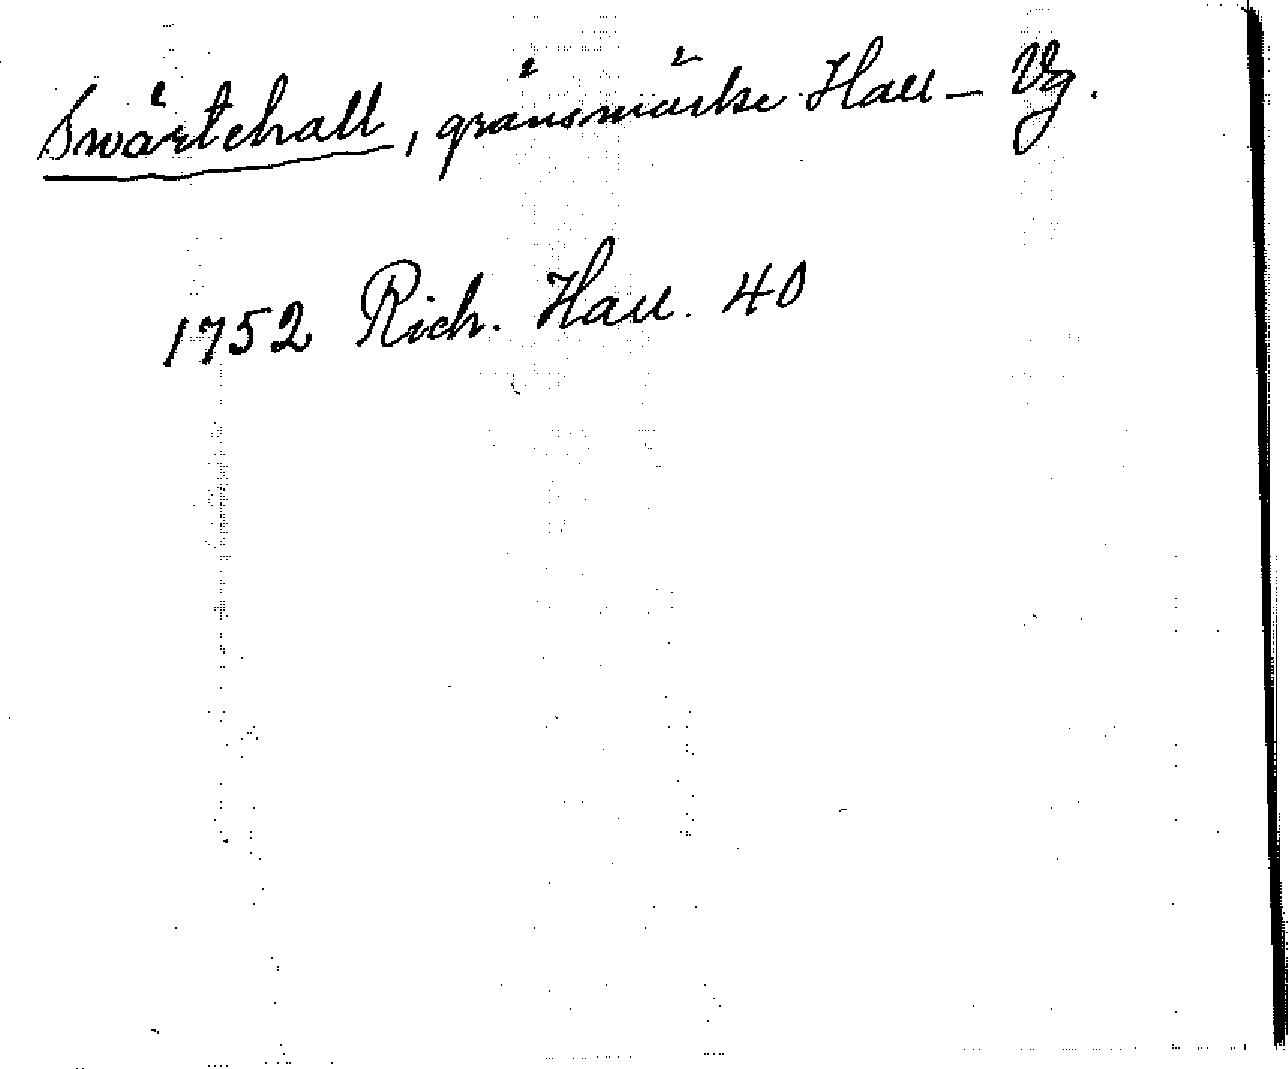 Swärtehall, gränsmärke Hall – Vg.
1752 Rich. Hall. 40